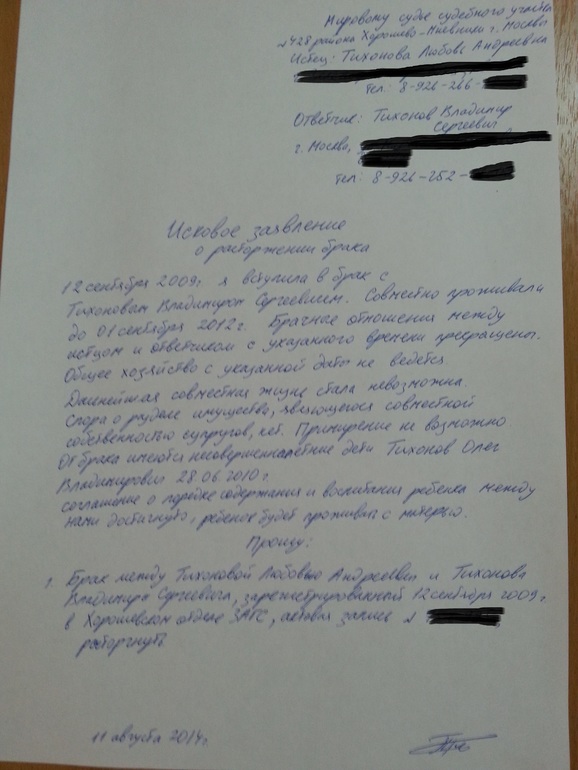 Мировому судье судебного участка
№428 района Хорошево-Мневники г. Москвы
Истец: Тихонова Любовь Андреевна
тел: 8-926-266-
Ответчик: Тихонов Владимир
Сергеевич
г. Москва,
тел: 8-926-252-
Исковое заявление
о расторжении брака
12 сентября 2009г. я вступила в брак с
Тихоновым Владимиром Сергеевичем. Совместно проживали
до 01 сентября 2012г. Брачные отношения между
истцом и ответчиком с указанного времени прекращены.
Общее хозяйство с указанной даты не ведется.
Дальнейшая совместная жизнь стала невозможна.
Спора о разделе имущества, являющегося совместной
собственностью супругов, нет. Примирение не возможно
От брака имеются несовершеннолетние дети Тихонов Олег
Владимирович 28.06.2010г.
соглашение о порядке содержания и воспитания ребенка между
нами достигнуто, ребенок будет проживать с матерью.
Прошу:
1. Брак между Тихоновой Любовью Андреевной и Тихонова
Владимира Сергеевича, зарегистрированный 12 сентября 2009г.
в Хорошевском отделе ЗАГС, актовая запись №
расторгнуть
11 августа 2014г.